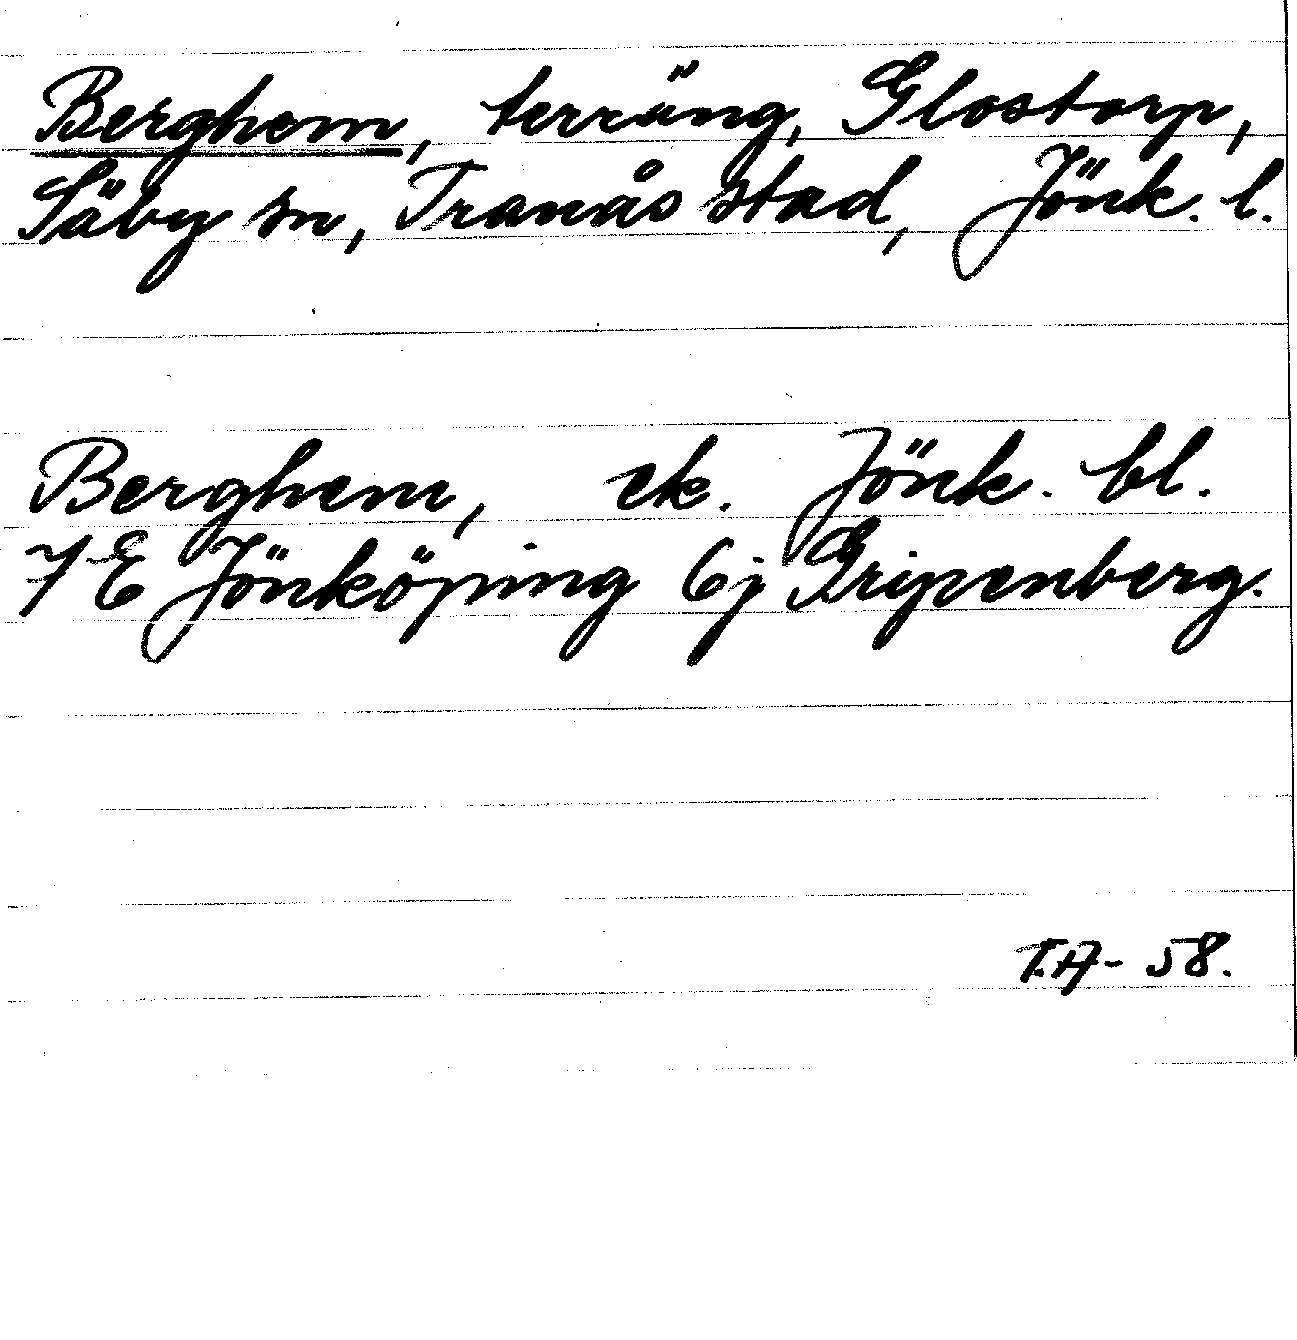 Berghem, terräng, Glostorp,
Säby sn, Tranås stad, Jönk. l.
Berghem, ek. Jönk. bl.
7 E Jönköping 6j Gripenberg.
T.A - 58.